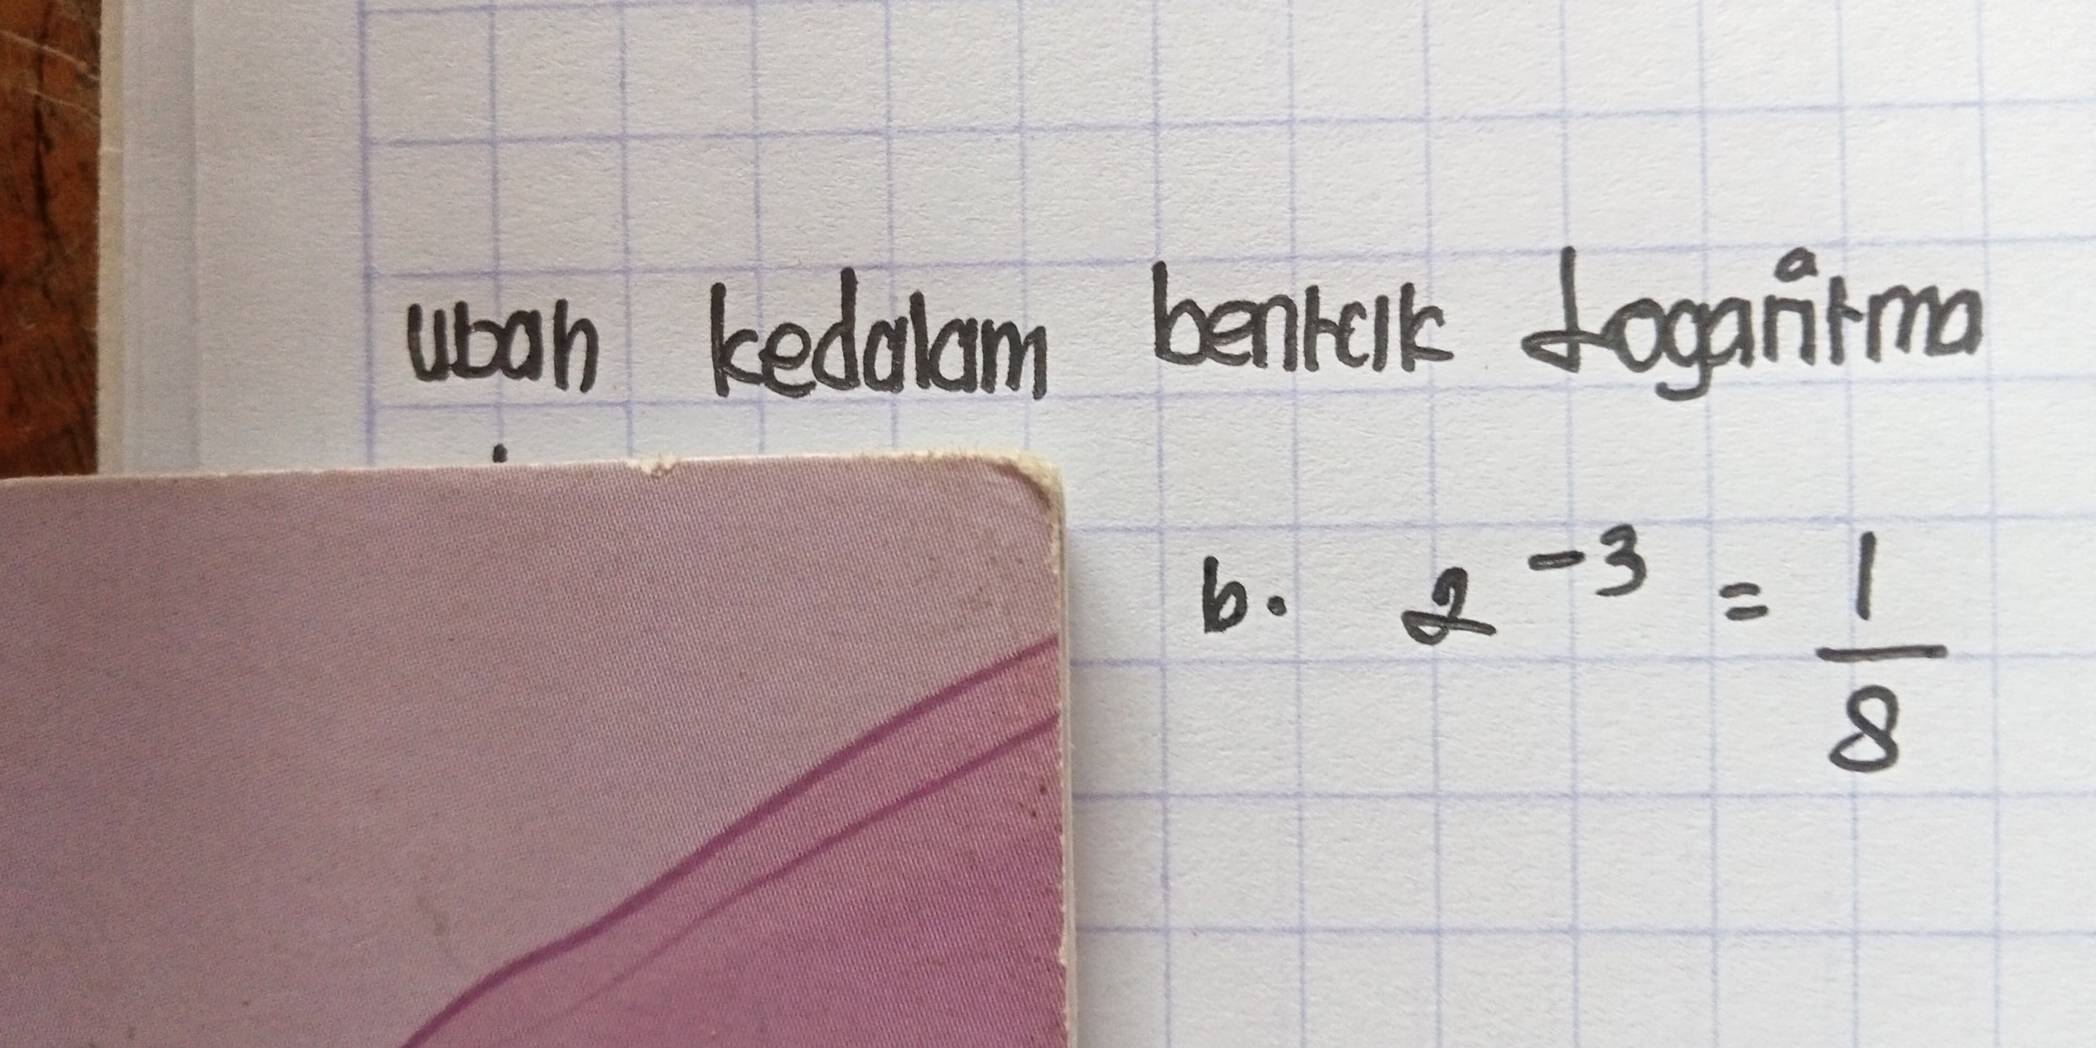 ubah kedalam bentuk Logaritma
b. 2⁻³ = 1/8